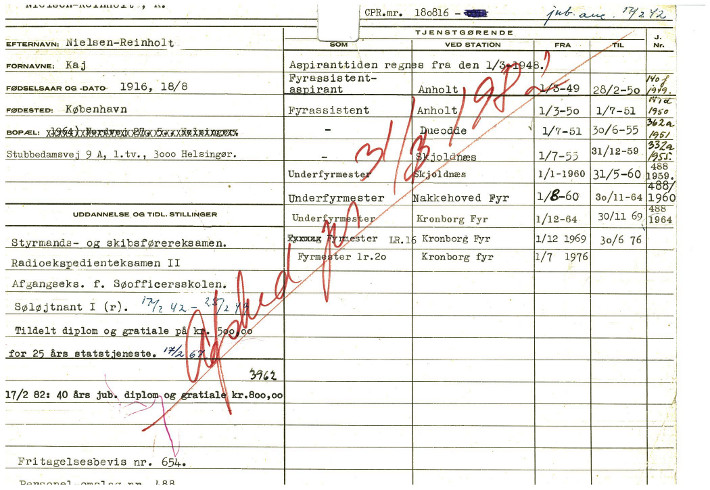 Nielsen-Reinholt, K.
CPR.nr. 180816 -
jub. anc. 17/2 42
TJENSTGØRENDE
EFTERNAVN: Nielsen-Reinholt
SOM VED STATION FRA TIL J. Nr.
FORNAVNE: Kaj
Aspiranttiden regnes fra den 1/3-1948.
FØDSELSAAR OG -DATO 1916, 18/8
Fyrassistent-
aspirant Anholt 1/3-49 28/2-50 1949.
FØDESTED: København
Fyrassistent Anholt 1/3-50 1/7-51 1950
BOPÆL: 1964) Nordvej 27, Helsingør.
— Dueodde 1/7-51 30/6-55 362a 1951
Stubbedamsvej 9 A, 1.tv., 3000 Helsingør.
— Skjoldnæs 1/7-55 31/12-59 332a 1955.
Underfyrmester Skjoldnæs 1/1-1960 31/5-60 488 1959.
Underfyrmester Nakkehoved Fyr 1/8-60 30/11-64 488/ 1960
UDDANNELSE OG TIDL. STILLINGER
Underfyrmester Kronborg Fyr 1/12-64 30/11 69 488 1964
Styrmands- og skibsførereksamen.
Fyrmester LR.16 Kronborg Fyr 1/12 1969 30/6 76
Radioekspedienteksamen II
Fyrmester lr.20 Kronborg fyr 1/7 1976
Afgangseks. f. Søofficersskolen.
Søløjtnant I (r). 17/2 42 -
Tildelt diplom og gratiale på kr. 500,00
for 25 års statstjeneste. 17/2 67
3962
17/2 82: 40 års jub. diplom og gratiale kr.800,00
Afsked pr 31/3 1982
Fritagelsesbevis nr. 654.
Personel-omslag nr. 488